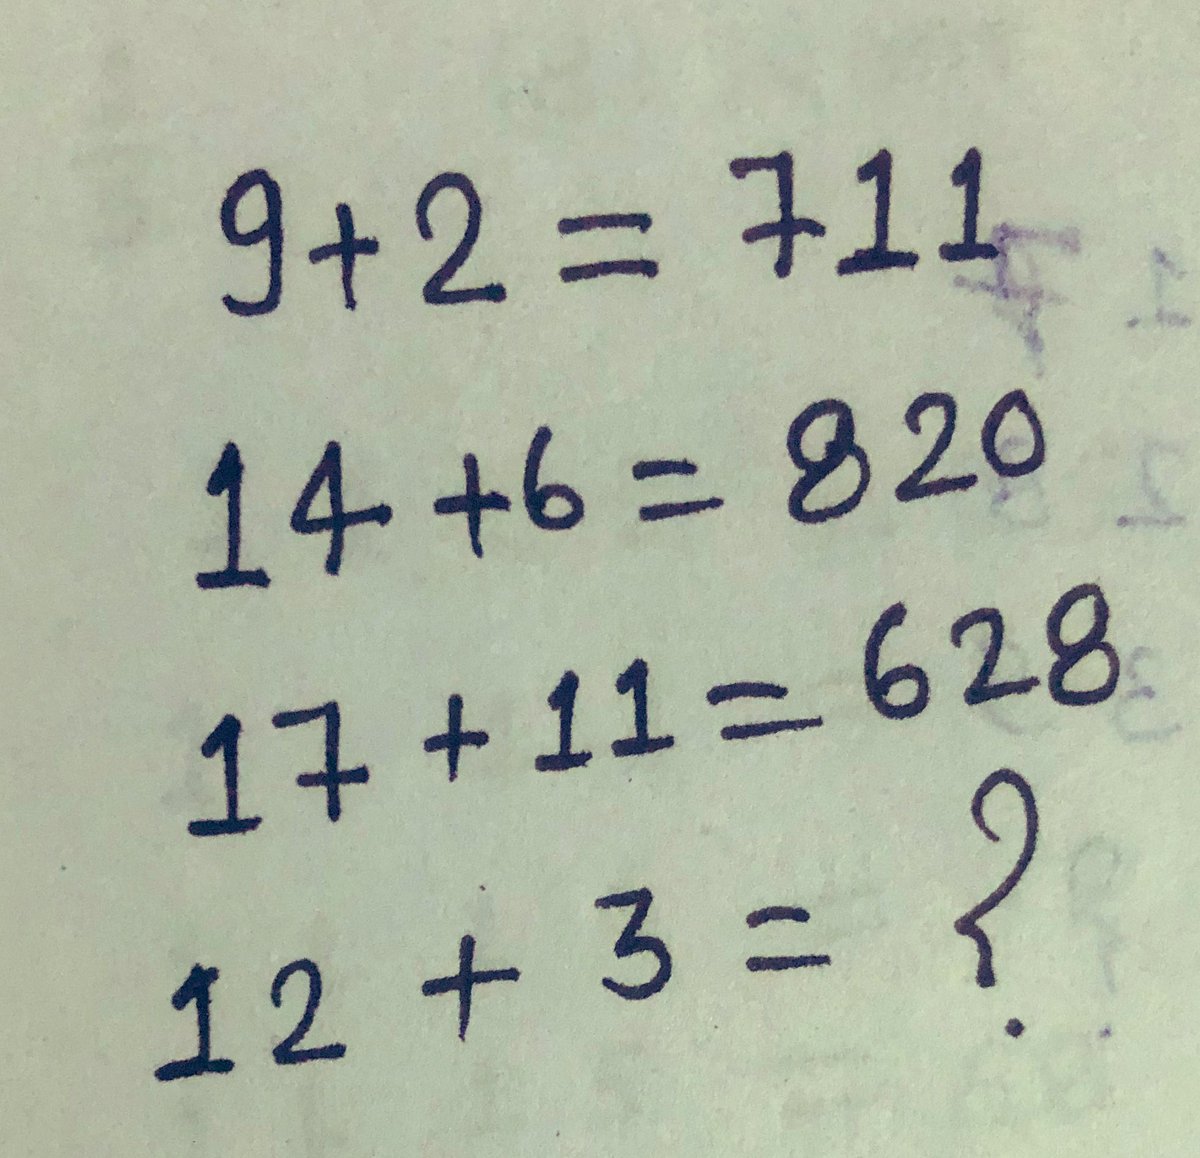 9+2=711
14+6=820
17+11=628
12+3=?